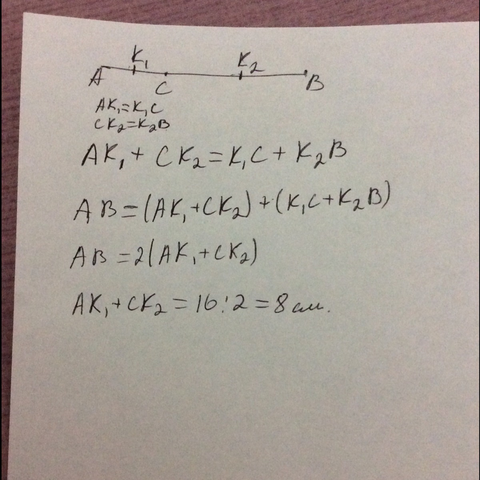 K₁ K₂
A C B
AK₁=K₁C
CK₂=K₂B
AK₁+CK₂=K₁C+K₂B
AB=(AK₁+CK₂)+(K₁C+K₂B)
AB=2(AK₁+CK₂)
AK₁+CK₂=16:2=8см.